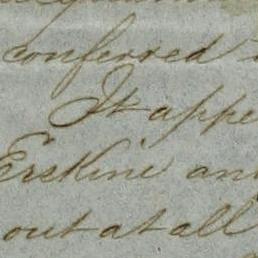 conferred
It appe
Erskine an
out at all